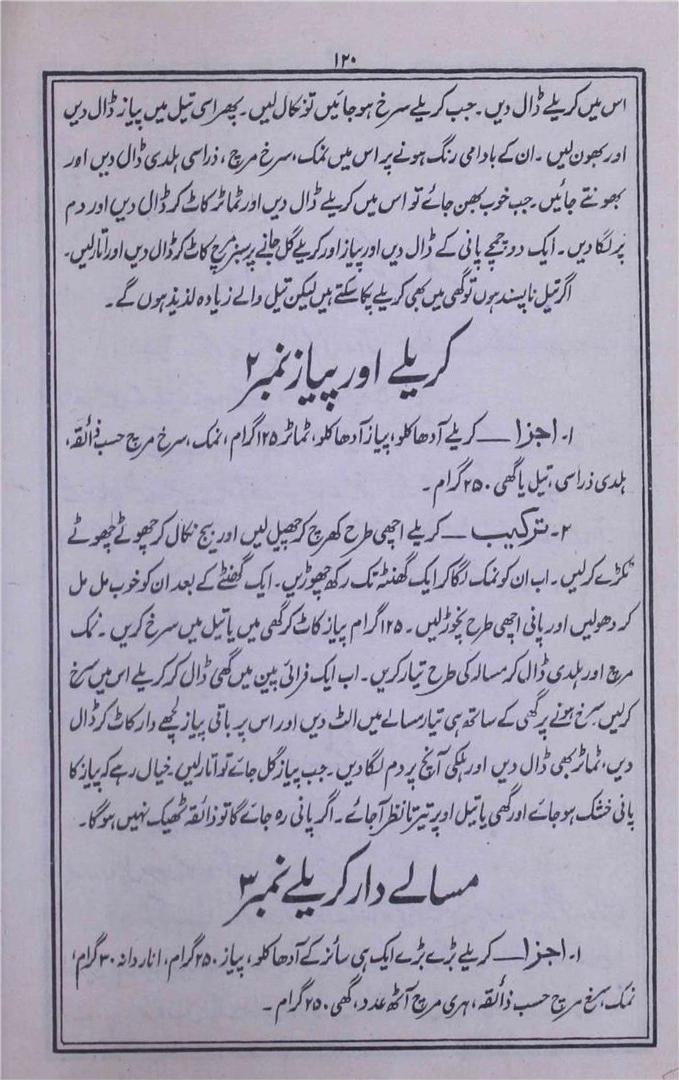 ۱۲۰
اس میں کریلے ڈال دیں۔ جب کریلے سرخ ہو جائیں تو نکال لیں۔ پھر اسی تیل میں پیاز ڈال دیں
اور بھون لیں۔ ان کے بادامی رنگ ہونے پر اس میں نمک، سرخ مرچ، ذراسی ہلدی ڈال دیں اور
بھونتے جائیں۔ جب خوب بھن جائے تو اس میں کریلے ڈال دیں اور ٹماٹر کاٹ کر ڈال دیں اور دم
پر لگا دیں۔ ایک دو چمچے پانی کے ڈال دیں اور پیاز اور کریلے گل جانے پر سبز مرچ کاٹ کر ڈال دیں اور اتار لیں۔
اگر تیل ناپسند ہوں تو گھی میں بھی کریلے پکا سکتے ہیں لیکن تیل والے زیادہ لذیذ ہوں گے۔
کریلے اور پیاز نمبر ۲
۱۔ اجزا — کریلے آدھا کلو، پیاز آدھا کلو، ٹماٹر ۱۲۵ گرام، نمک، سرخ مرچ حسب ذائقہ،
ہلدی ذراسی، تیل یا گھی ۲۵۰ گرام۔
۲۔ ترکیب — کریلے اچھی طرح کھرچ کر چھیل لیں اور بیج نکال کر چھوٹے چھوٹے
ٹکڑے کر لیں۔ اب ان کو نمک لگا کر ایک گھنٹہ تک رکھ چھوڑیں۔ ایک گھنٹے کے بعد ان کو خوب مل مل
کر دھو لیں اور پانی اچھی طرح نچوڑ لیں۔ ۱۲۵ گرام پیاز کاٹ کر گھی میں یا تیل میں سرخ کریں۔ نمک
مرچ اور ہلدی ڈال کر مسالہ کی طرح تیار کریں۔ اب ایک فرائی پین میں گھی ڈال کر کریلے اس میں سرخ
کرلیں۔ سرخ ہونے پر گھی کے ساتھ ہی تیار مسالے میں الٹ دیں اور اس پر باقی پیاز لچھے دار کاٹ کر ڈال
دیں، ٹماٹر بھی ڈال دیں اور ہلکی آنچ پر دم لگا دیں۔ جب پیاز گل جائے تو اتار لیں۔ خیال رہے کہ پیاز کا
پانی خشک ہو جائے اور گھی یا تیل اوپر تیرتا نظر آ جائے۔ اگر پانی رہ جائے گا تو ذائقہ ٹھیک نہیں ہو گا۔
مسالے دار کریلے نمبر ۳
۱۔ اجزا — کریلے بڑے بڑے ایک ہی سائز کے آدھا کلو، پیاز ۲۵۰ گرام، انار دانہ ۳۰ گرام،
نمک، سرخ مرچ حسب ذائقہ، ہری مرچ آٹھ عدد، گھی ۲۵۰ گرام۔